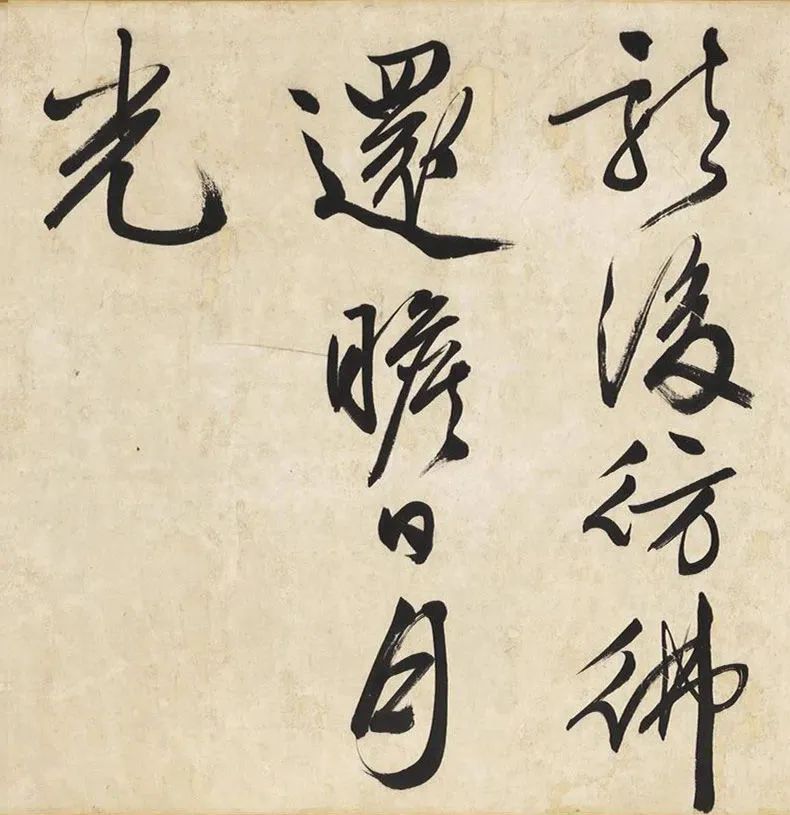 後彷彿
還瞻日月
光